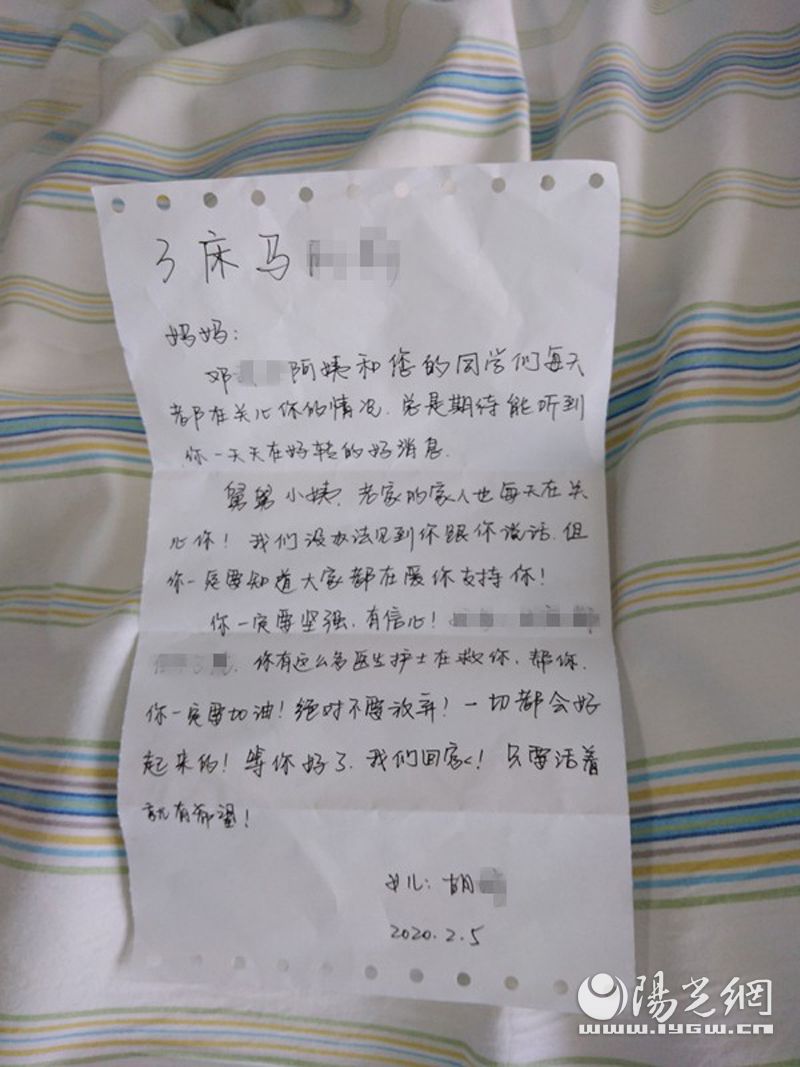 3床马
妈妈：
邓 阿姨和您的同学们每天
都在关心你的情况，总是期待能听到
你一天天在好转的好消息.
舅舅小姨，老家的家人也每天在关
心你！我们没办法见到你跟你说话，但
你一定要知道大家都在爱你支持你！
你一定要坚强，有信心！
你有这么多医生护士在救你，帮你.
你一定要加油！绝对不要放弃！一切都会好
起来的！等你好了，我们回家！只要活着
就有希望！
女儿：胡
2020.2.5
陽光網
www.iygw.cn